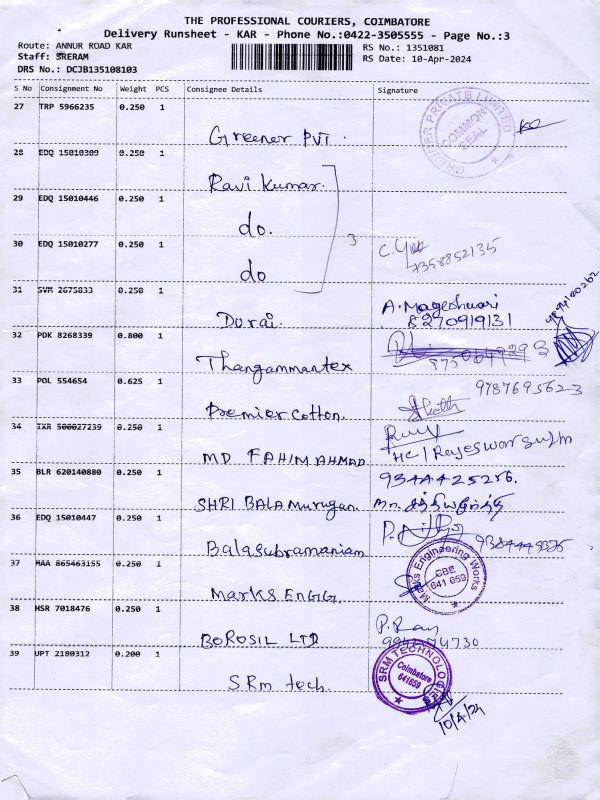 THE PROFESSIONAL COURIERS, COIMBATORE
Delivery Runsheet - KAR - Phone No.:0422-3505555 - Page No.:3
Route: ANNUR ROAD KAR
RS No.: 1351081
Staff: SRERAM
RS Date: 10-Apr-2024
DRS No.: DCJB135108103
S No Consignment No Weight PCS Consignee Details Signature
27 TRP 5966235 0.250 1
Greener Pvt.
PRIVATE LIMITED
COMMON SEAL
28 EDQ 15010309 0.250 1
Ravi Kumar.
29 EDQ 15010446 0.250 1
do.
3
30 EDQ 15010277 0.250 1
do
7358852135
31 SVM 2675833 0.250 1
Durai.
A. Mageshwari
8270919131
32 PDK 8268339 0.800 1
Thangammantex
33 POL 554654 0.625 1
Premier Cotton.
9787695623
34 IXR 500027239 0.250 1
MD FAHIM AHMAD
35 BLR 620140880 0.250 1
SHRI BALA Murugan.
9344425256.
36 EDQ 15010447 0.250 1
Balasubramaniam
37 MAA 865463155 0.250 1
MARKS ENGG.
Marks Engineering Works
CBE
641 659
38 HSR 7018476 0.250 1
BOROSIL LTD
39 UPT 2180312 0.200 1
SRm tech.
SRM TECHNOLOGIES
Coimbatore
641659
10/4/24